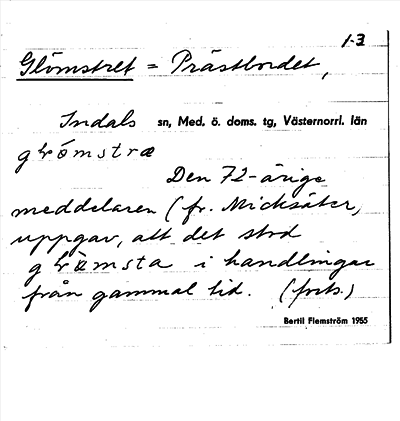 1-3
Glömstret = Prästbordet,
Indals sn, Med. ö. doms. tg, Västernorrl. län
Den 72-årige
meddelaren (fr. Micksäter)
uppgav, att det stod
i handlingar
från gammal tid. (forts.)
Bertil Flemström 1955